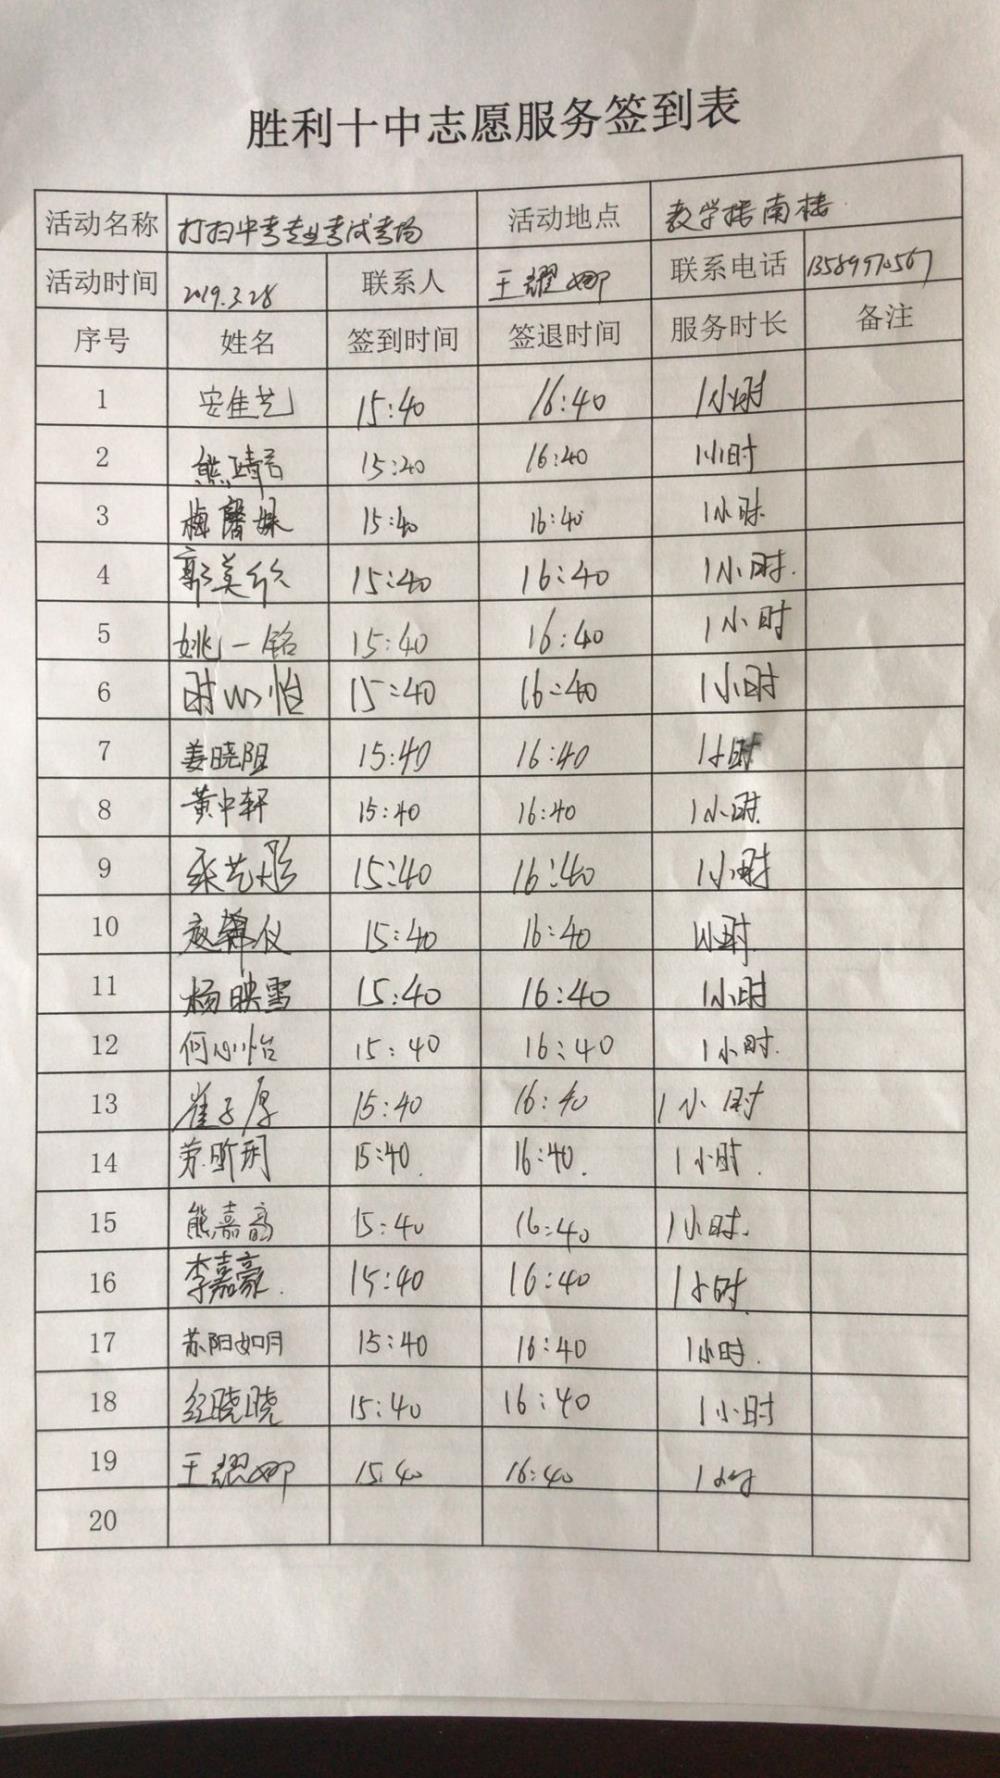 胜利十中志愿服务签到表
活动名称 打扫中考专业考试考场 活动地点 教学楼南楼
活动时间 2019.3.28 联系人 王耀娜 联系电话
序号 姓名 签到时间 签退时间 服务时长 备注
1 安佳艺 15:40 16:40 1小时
2 熊靖君 15:40 16:40 1小时
3 梅馨姝 15:40 16:40 1小时
4 郭美 15:40 16:40 1小时.
5 姚一铭 15:40 16:40 1小时
6 时心怡 15:40 16:40 1小时
7 姜晓阳 15:40 16:40 1小时
8 黄中轩 15:40 16:40 1小时.
9 张艺彤 15:40 16:40 1小时
10 仪 15:40 16:40 1小时.
11 杨映雪 15:40 16:40 1小时
12 何心怡 15:40 16:40 1小时.
13 崔子厚 15:40 16:40 1小时
14 昕玥 15:40. 16:40. 1小时.
15 熊嘉 15:40 16:40 1小时.
16 李嘉豪. 15:40 16:40 1小时.
17 苏阳如月 15:40 16:40 1小时.
18 晓晓 15:40 16:40 1小时
19 王耀娜 15:40 16:40 1小时
20